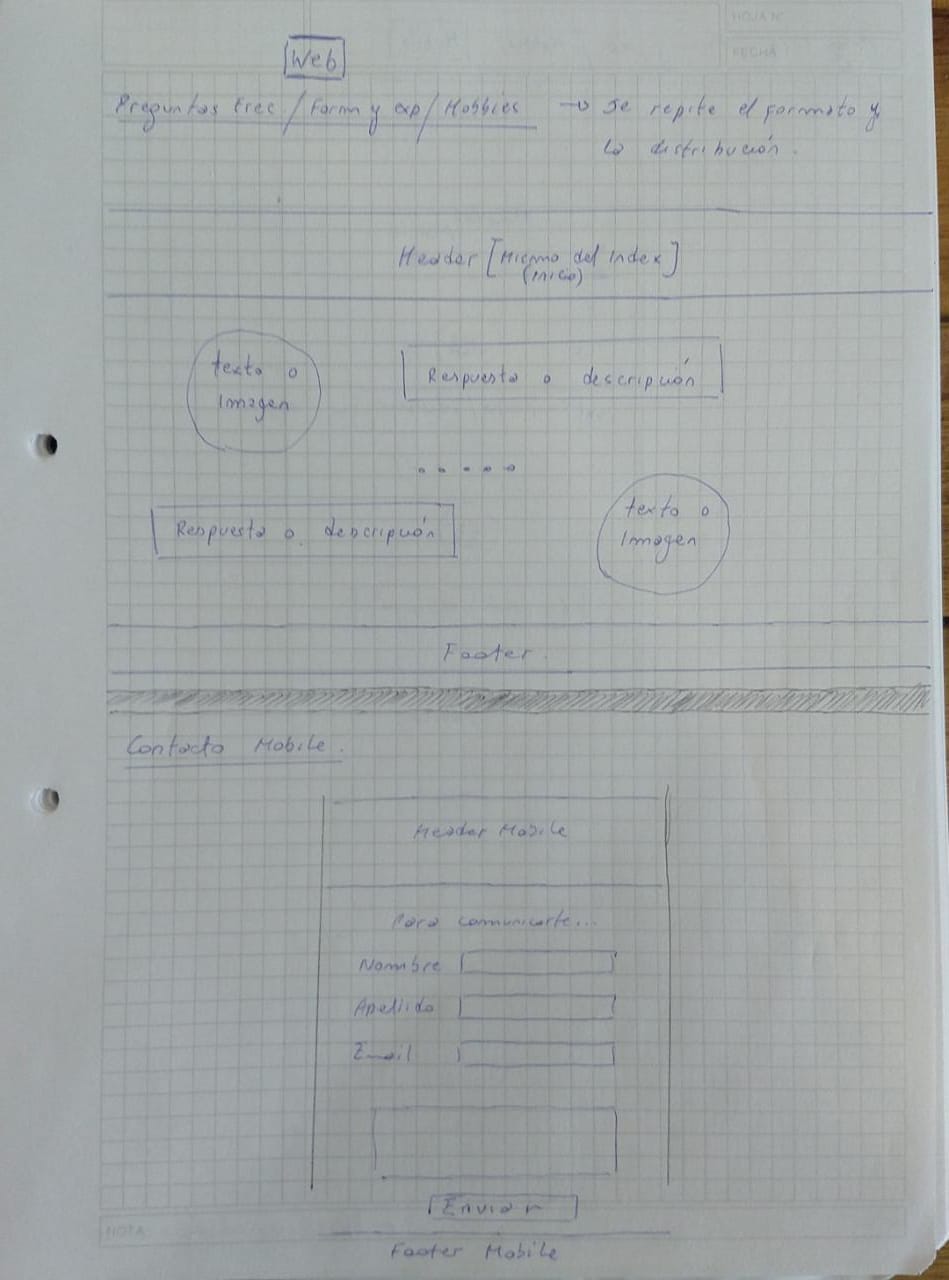 HOJA Nº
FECHA
Web
Preguntas frec / Form y exp / Hobbies → Se repite el formato y
la distribución.
Header [Mismo del Index]
(Inicio)
texto o
Imagen
Respuesta o descripción
.....
Respuesta o descripción
texto o
Imagen
Footer.
Contacto Mobile.
Header Mobile
Para comunicarte...
Nombre
Apellido
Email
Enviar
NOTA
Footer Mobile